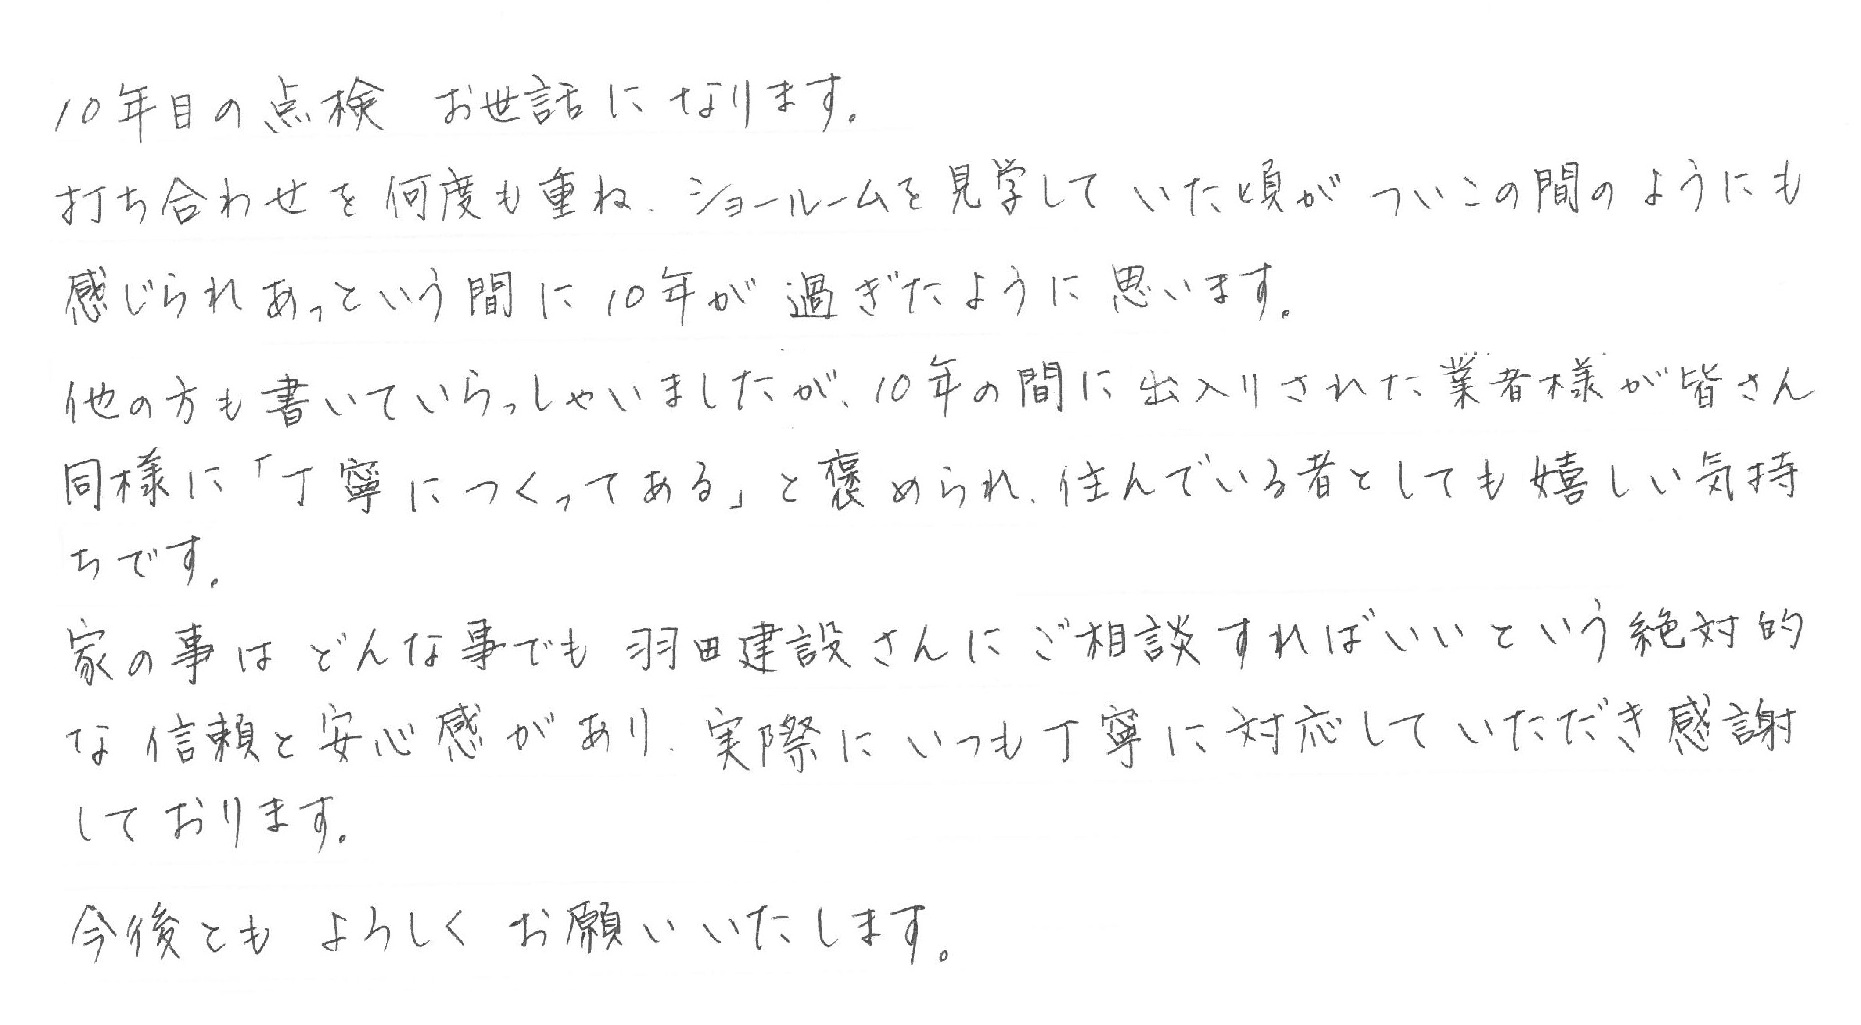 10年目の点検 お世話になります。
打ち合わせを何度も重ね、ショールームを見学していた頃がついこの間のようにも
感じられあっという間に10年が過ぎたように思います。
他の方も書いていらっしゃいましたが、10年の間に出入りされた業者様が皆さん
同様に「丁寧につくってある」と褒められ、住んでいる者としても嬉しい気持
ちです。
家の事はどんな事でも羽田建設さんにご相談すればいいという絶対的
な信頼と安心感があり、実際にいつも丁寧に対応していただき感謝
しております。
今後とも よろしく お願いいたします。